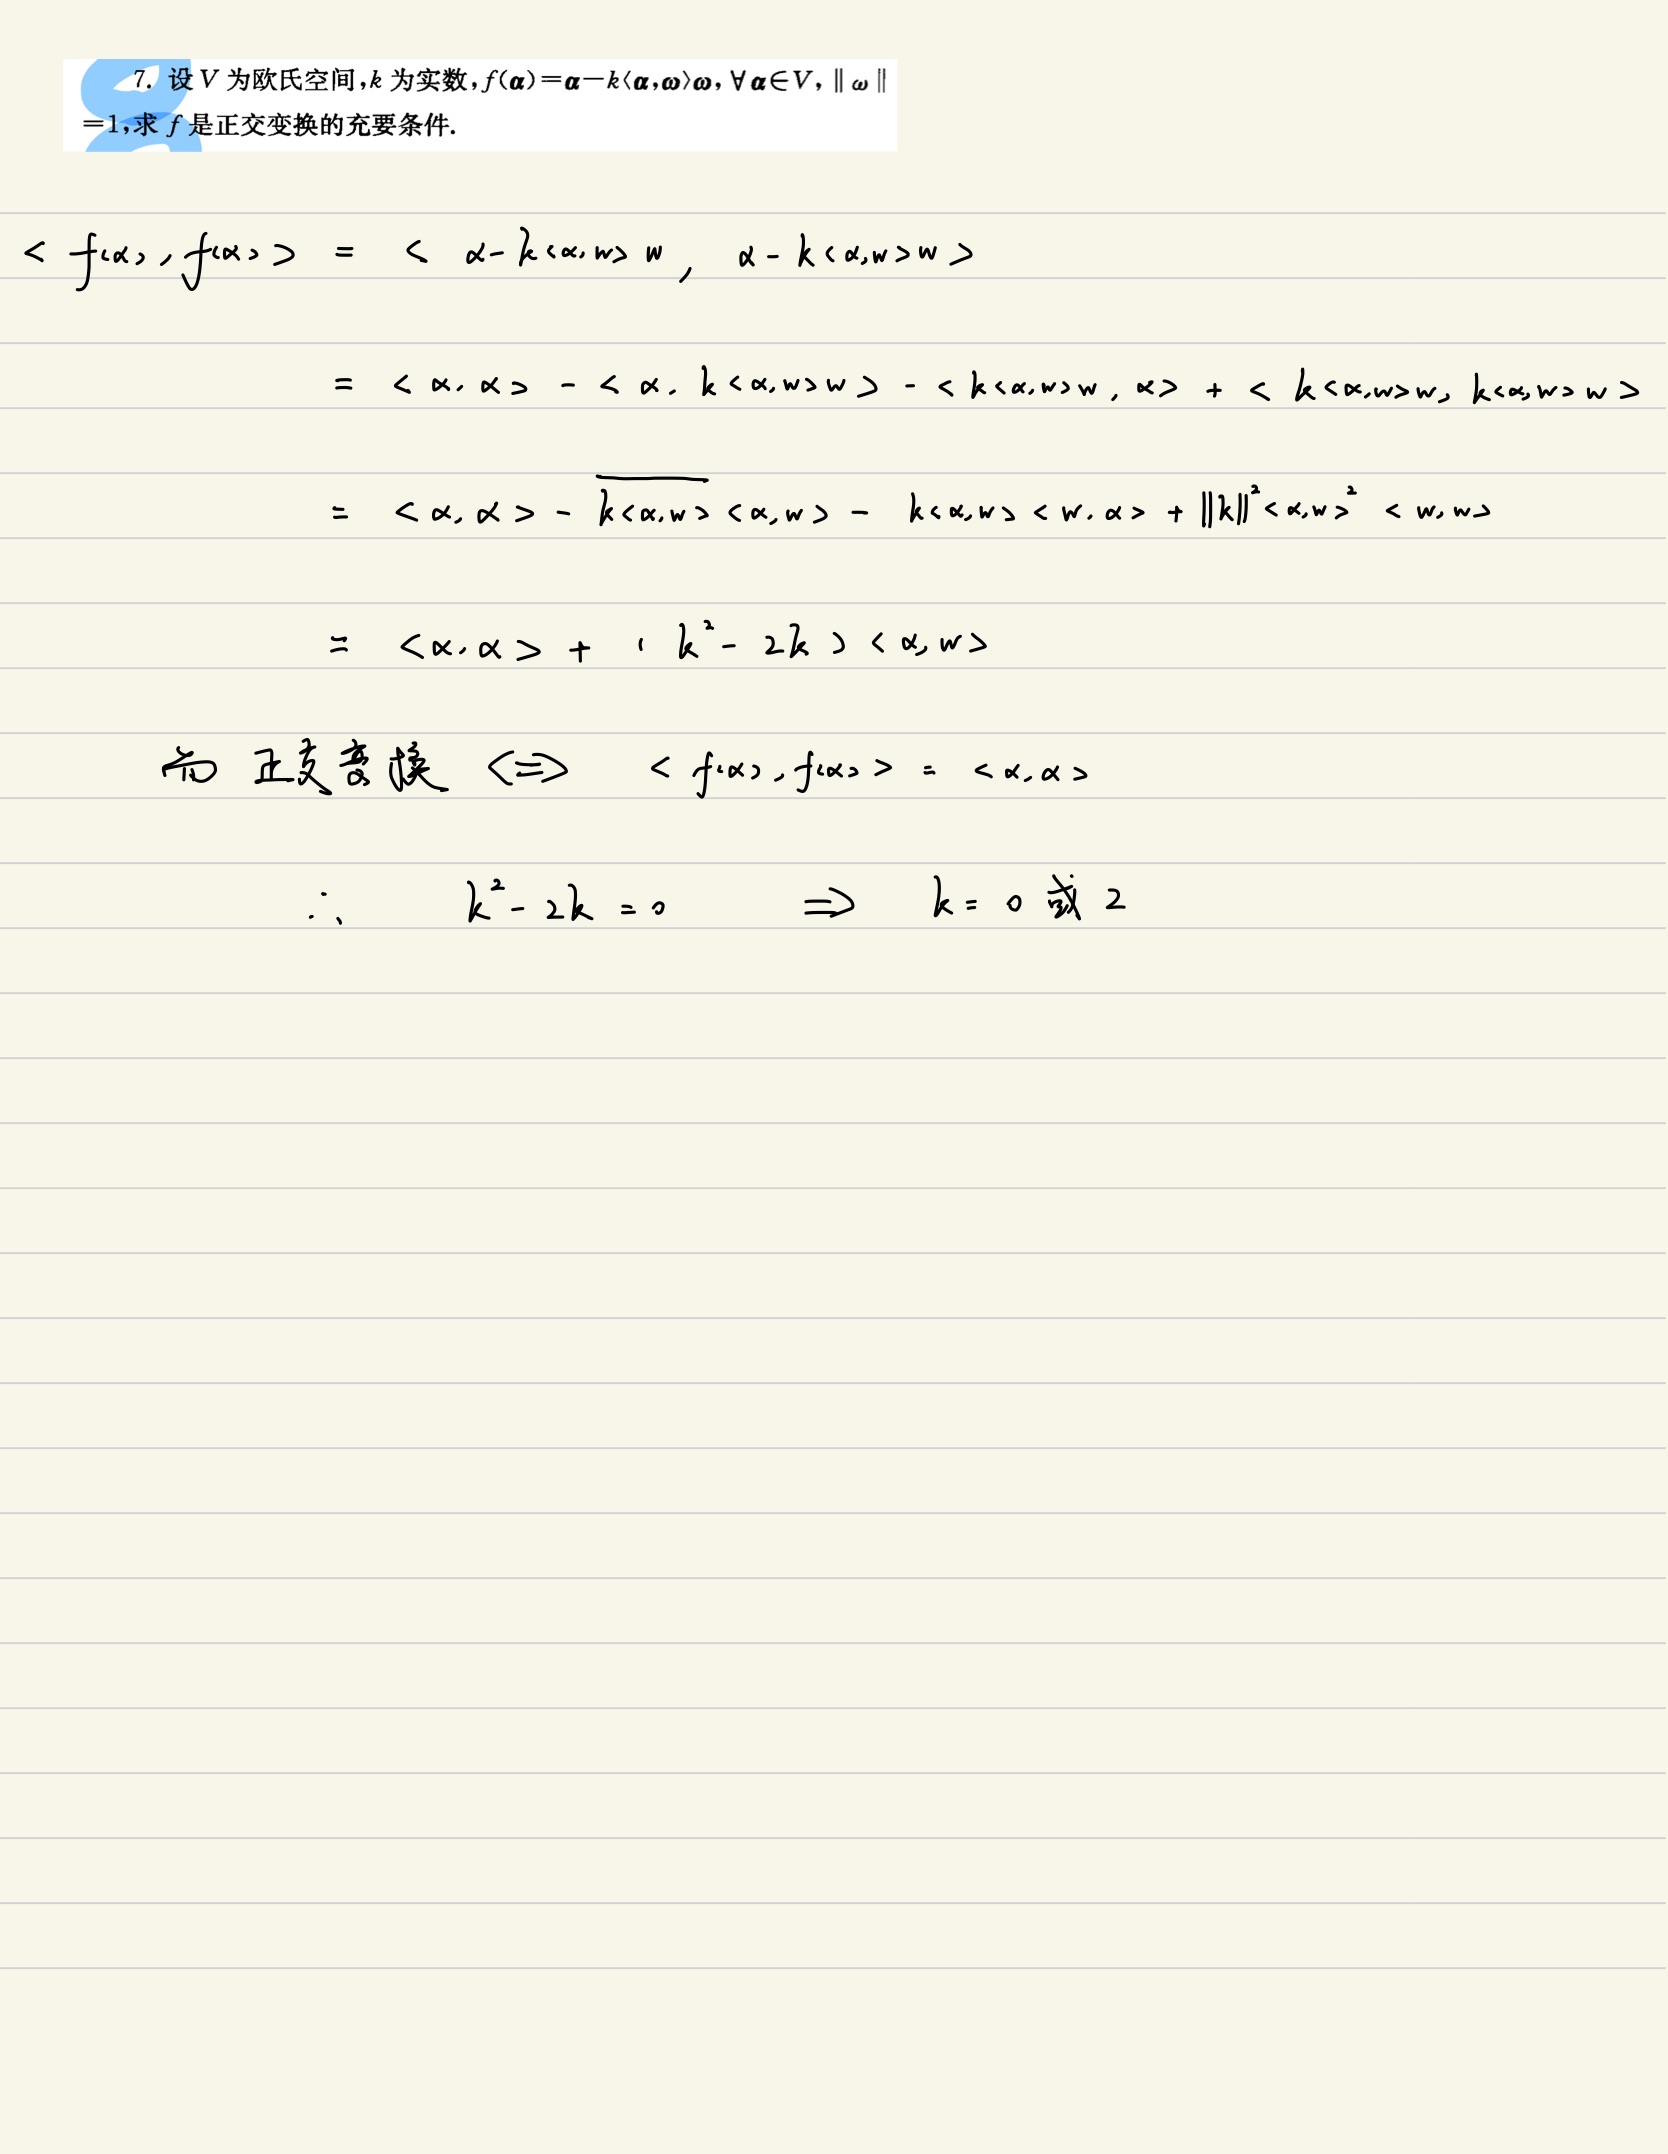 7. 设 V 为欧氏空间,k 为实数,f(α)=α−k⟨α,ω⟩ω,∀α∈V,‖ω‖
=1,求 f 是正交变换的充要条件.
< f(α), f(α) > = < α-k<α,w>w, α-k<α,w>w >
= <α,α> - <α, k<α,w>w> - <k<α,w>w, α> + <k<α,w>w, k<α,w>w>
= <α,α> - \overline{k<α,w>}<α,w> - k<α,w><w,α> + ||k||²<α,w>²<w,w>
= <α,α> + (k²-2k)<α,w>
而 正交变换 <=> <f(α), f(α)> = <α,α>
∴ k²-2k=0 => k=0或2